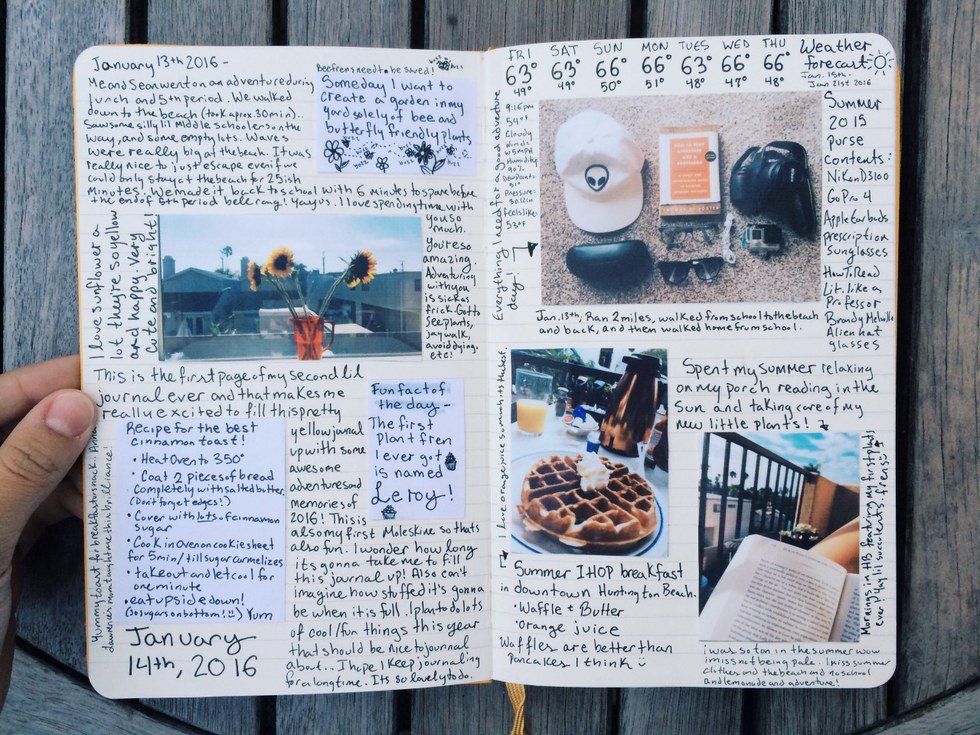 January 13th 2016 -
Me and Sean went on an adventure during
lunch and 5th period. We walked
down to the beach (took aprox. 30min)..
Saw some silly lil middle schoolers on the
way, and some empty lots. Waves
were really big at the beach. It was
really nice to just escape even if we
could only stay at the beach for 25ish
minutes! We made it back to school with 6 minutes to spare before
the end of 5th period bell rang! Yay us. I love spending time with
you so
much.
You're so
amazing.
Adventuring
with you
is sick as
frick. Got to
see plants,
jaywalk,
avoid dying.
etc!
Bee frens need to be saved!
Someday I want to
create a garden in my
yard solely of bee and
butterfly friendly plants
I love sunflower a
lot they're so yellow
and happy. Very
cute and bright!
This is the first page of my second lil
journal ever and that makes me
really excited to fill this pretty
yellow journal
up with some
awesome
adventures and
memories of
2016! This is
also my first Moleskine so thats
also fun. I wonder how long
its gonna take me to fill
this journal up! Also can't
imagine how stuffed it's gonna
be when it is full. I plan to do lots
of cool/fun things this year
that should be nice to journal
about.. I hope I keep journaling
for a long time. Its so lovely to do.
Fun fact of
the day -
The first
plant fren
I ever got
is named
Leroy!
Recipe for the best
cinnamon toast!
• Heat Oven to 350°
• Coat 2 pieces of bread
completely with salted butter.
(Don't forget edges!)
• Cover with lots of cinnamon
sugar
• Cook in oven on cookie sheet
for 5min/till sugar carmelizes
• take out and let cool for
one minute
• eat upside down!
(so sugars on bottom!! :) Yum
Yummy toast for breakfast or snack.
January
14th, 2016
FRI SAT SUN MON TUES WED THU
63° 63° 66° 66° 63° 66° 66°
49° 49° 50° 51° 48° 47° 48°
Weather
forecast
Jan. 15th -
Jan 21st 2016
9:16pm
54°F
Cloudy
Winds:
W 5MPH
Humidity
90%
Dewpoint:
51°
Pressure:
30.12in
feels like
53°F
Everything I need for a good adventure
day!
HOW TO READ
LITERATURE LIKE
A PROFESSOR
Summer
2015
purse
Contents:
Nikon D3100
GoPro 4
Apple Earbuds
prescription
Sunglasses
How To Read
Lit. like a
Professor
Brandy Melville
Alien hat
glasses
Jan. 13th, Ran 2 miles, walked from school to the beach
and back, and then walked home from school.
I love orange juice so much its the best.
Summer IHOP breakfast
in downtown Hunting ton Beach.
• Waffle + Butter
• orange juice
Waffles are better than
Pancakes I think :)
Spent my summer relaxing
on my porch reading in the
Sun and taking care of my
new little plants!
Mornings in HB featuring my first plants
ever! Yay lil succulents frens :)
i was so tan in the summer wow
i miss not being pale. I miss summer
clothes and the beach and no school
and lemonade and adventure!